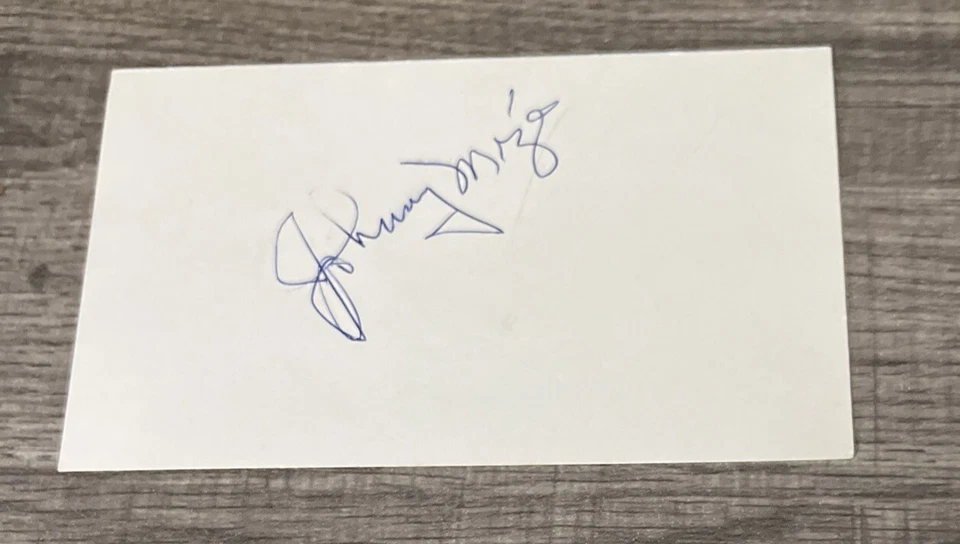 Johnny Mize